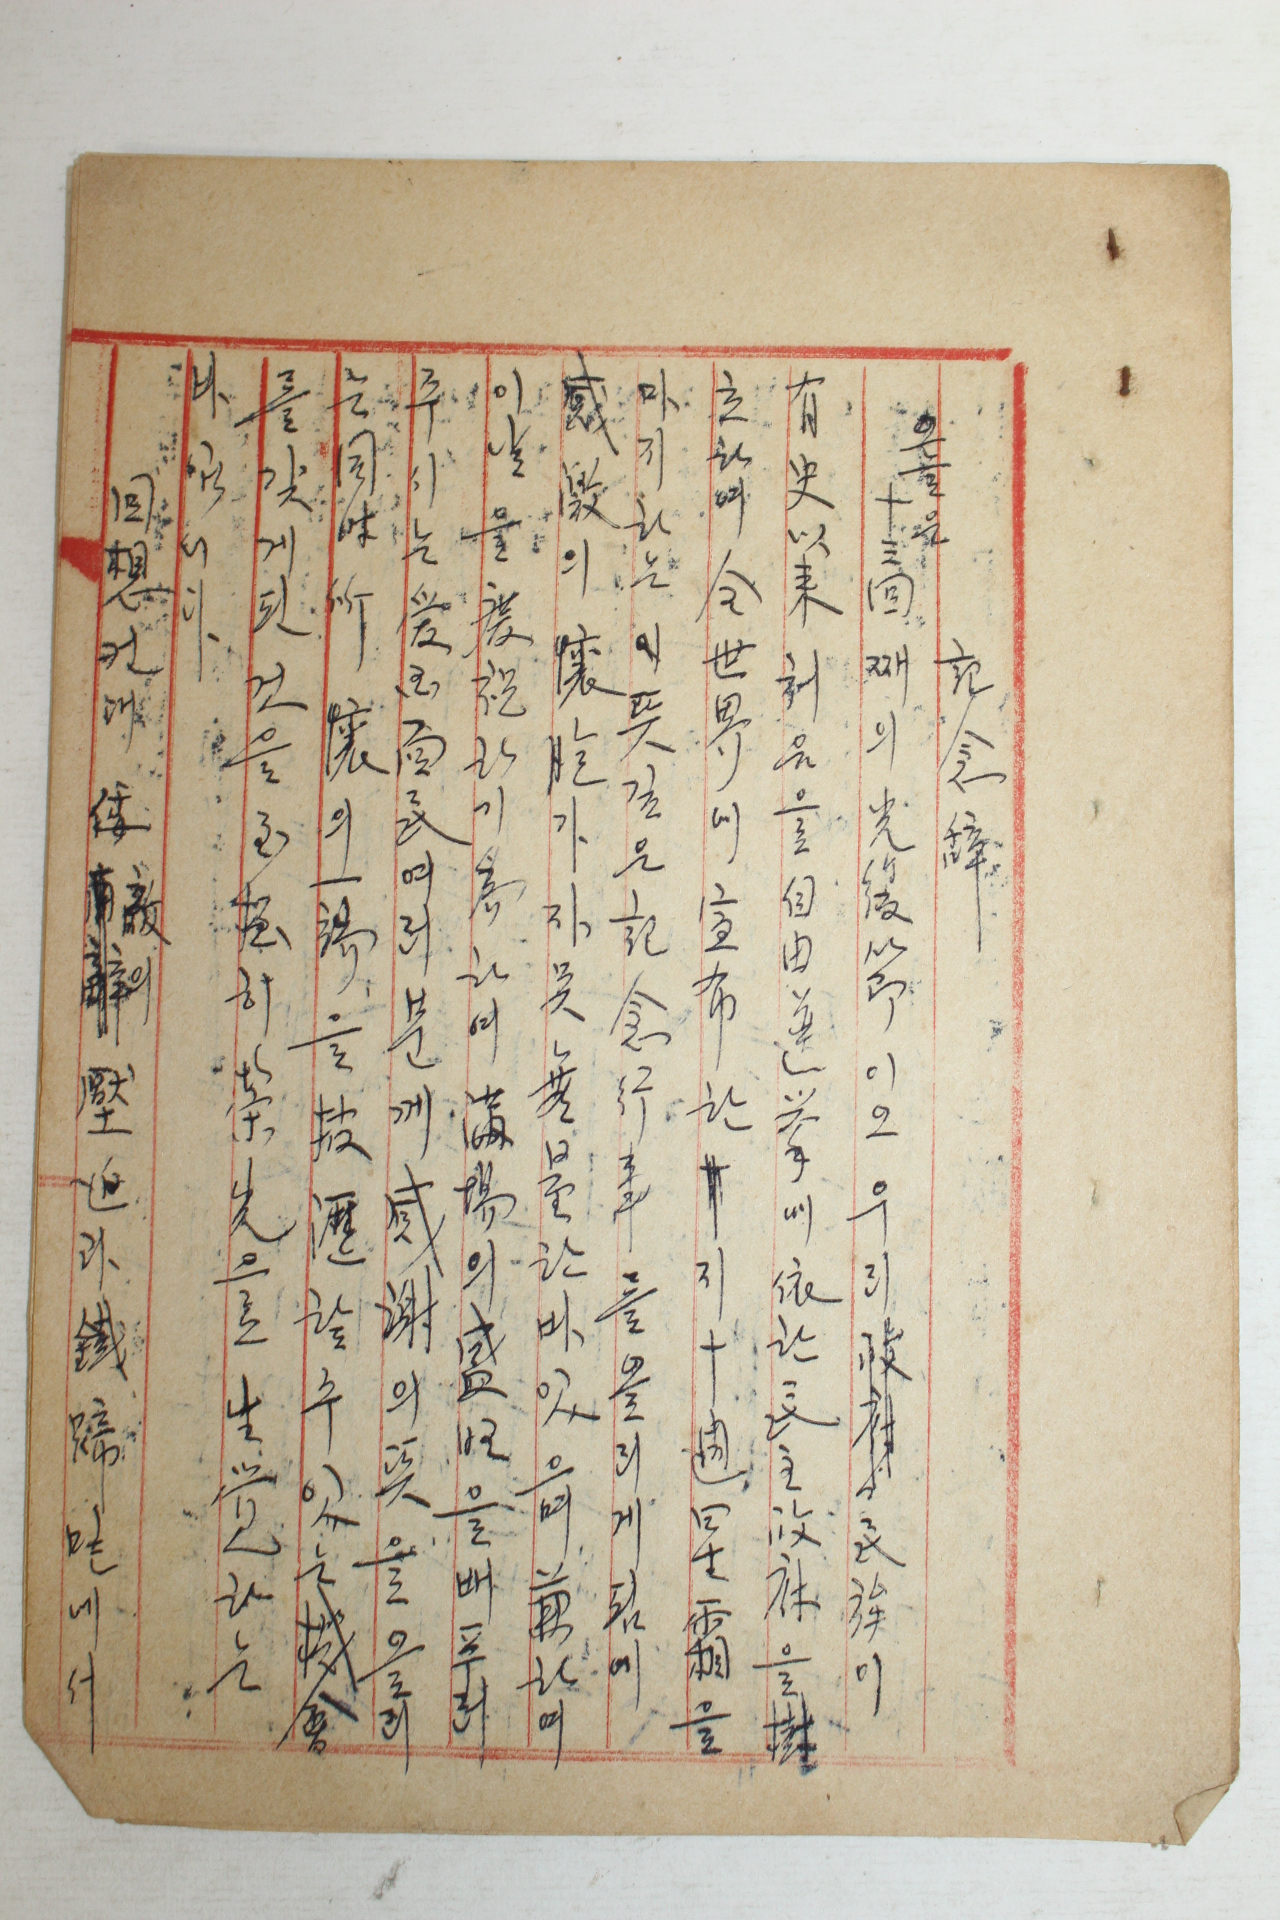 記念辭
오늘은
十三回째의 光復節이오 우리 民族이
有史以來 처음으로 自由選擧에 依한 民主政府을 樹
立하여 全世界에 宣布한 지 十週星霜을
마지하는 이 뜻깊은 記念行事를 올리게 됨에
感激의 懷抱가 자못 無量한 바 있으며 兼하여
이날을 慶祝하기 爲하여 滿場의 盛旺을 배푸러
주시는 愛国面民 여러분께 感謝의 뜻을 올리
는 同時 所懷의 一端을 披瀝할 수 있는 機會
를 갖게 된 것을 至極히 榮光으로 生覺하는
바입니다
回想컨대 倭敵의 壓迫과 鐵蹄 밑에서